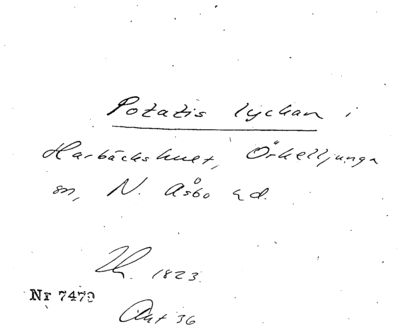 Potatis lyckan i
Harbäckshult, Örkelljunga
sn, N. Åsbo hd.
1823.
Nr 7479
Akt 36